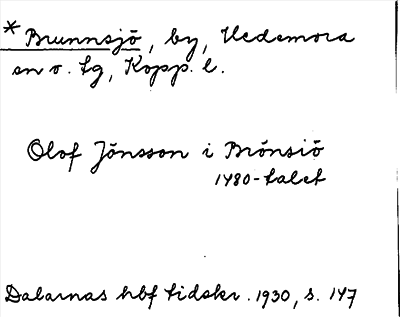 * Brunnsjö, by, Hedemora
sn o. tg, Kopp. l.
Olof Jönsson i Brönsiö
1480-talet
Dalarnas hbf tidskr. 1930, s. 147